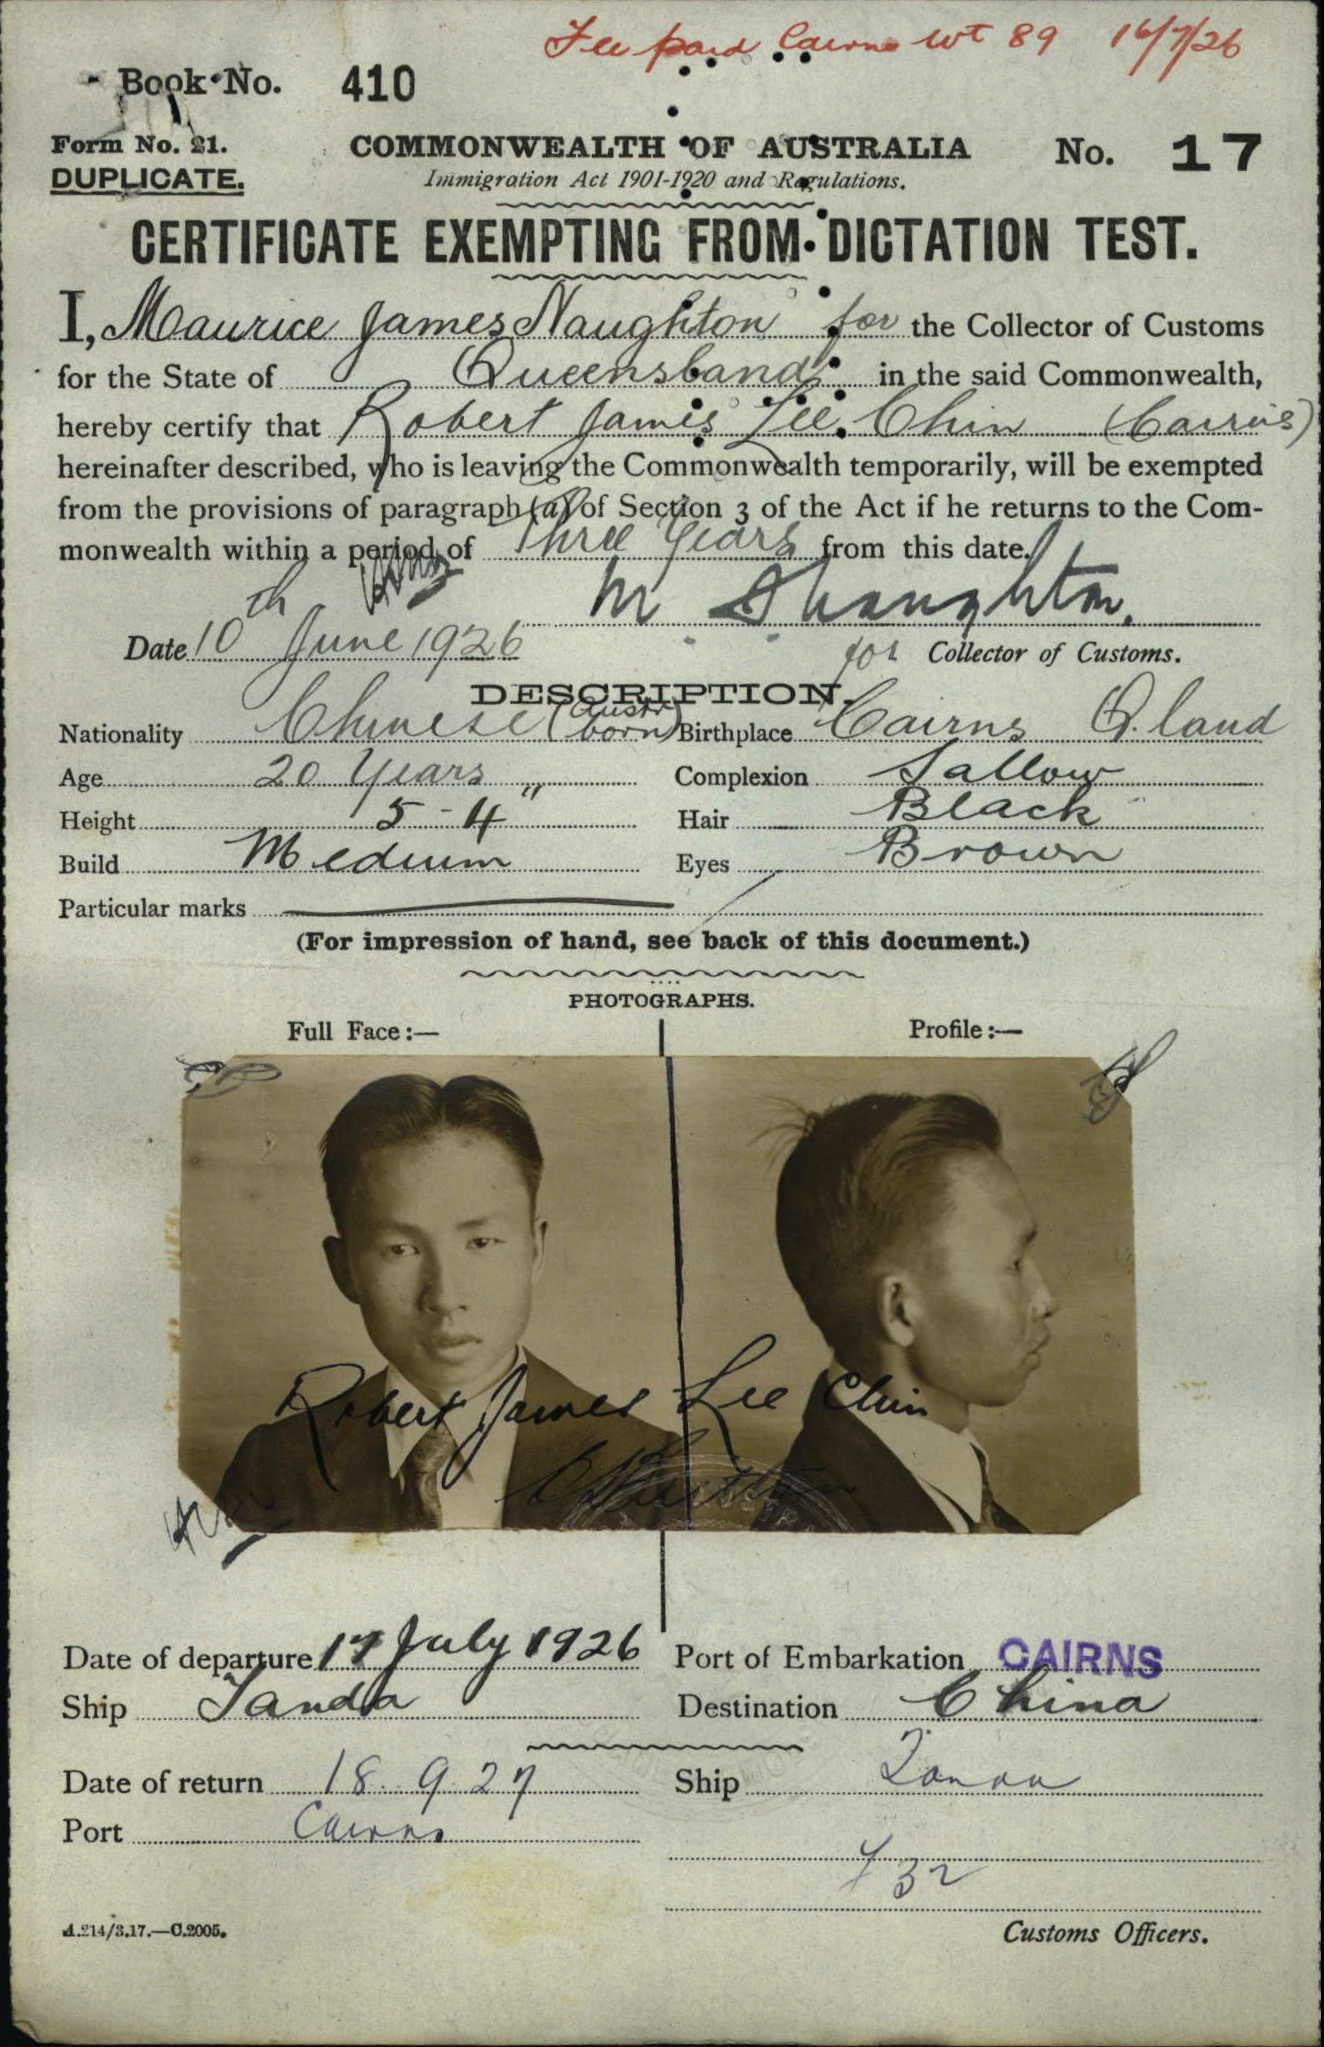 Fee paid Cairns wt 89 16/7/26
Book No. 410
Form No. 21.
DUPLICATE.
COMMONWEALTH OF AUSTRALIA
No. 17
Immigration Act 1901-1920 and Regulations.
CERTIFICATE EXEMPTING FROM DICTATION TEST.
I, Maurice James Naughton for the Collector of Customs
for the State of Queensland in the said Commonwealth,
hereby certify that Robert James Lee Chin (Cairns)
hereinafter described, who is leaving the Commonwealth temporarily, will be exempted
from the provisions of paragraph (a) of Section 3 of the Act if he returns to the Com-
monwealth within a period of Three Years from this date.
Date 10th June 1926
for Collector of Customs.
DESCRIPTION.
Nationality Chinese (Austr. born) Birthplace Cairns Q.land
Age 20 Years Complexion Sallow
Height 5-4" Hair Black
Build Medium Eyes Brown
Particular marks
(For impression of hand, see back of this document.)
PHOTOGRAPHS.
Full Face:— Profile:—
Robert James Lee Chin
Date of departure 17 July 1926 Port of Embarkation CAIRNS
Ship Tanda Destination China
Date of return 18.9.27 Ship Tanda
Port Cairns
32
A.214/3.17.—C.2005. Customs Officers.